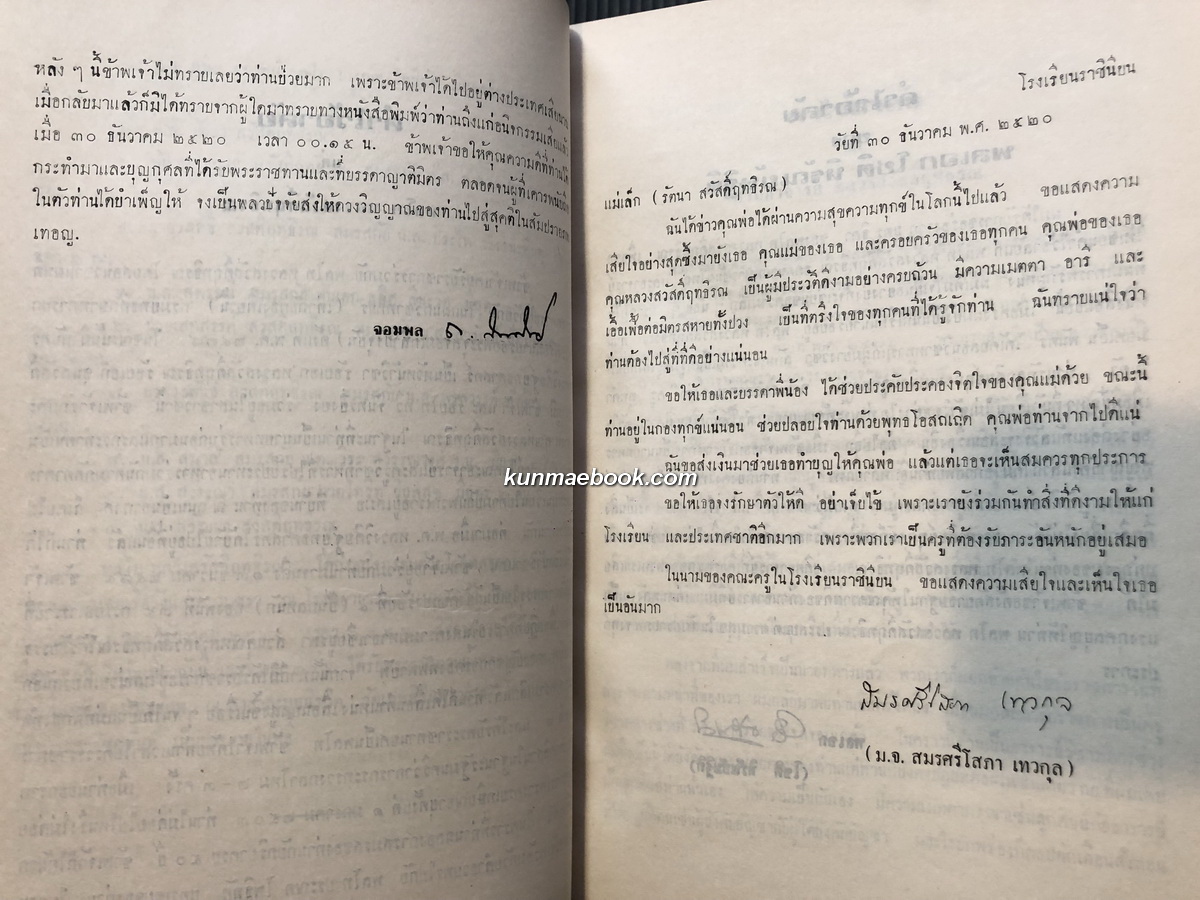 หลัง ๆ นี้ข้าพเจ้าไม่ทราบเลยว่าท่านป่วยมาก เพราะข้าพเจ้าได้ไปอยู่ต่างประเทศเสียนาน
เมื่อกลับมาแล้วก็มิได้ทราบจากผู้ใดมาทราบทางหนังสือพิมพ์ว่าท่านถึงแก่อนิจกรรมเสียแล้ว
เมื่อ ๓๐ ธันวาคม ๒๕๒๐ เวลา ๐๐.๑๕ น. ข้าพเจ้าขอให้คุณความดีที่ท่านได้
กระทำมาและบุญกุศลที่ได้รับพระราชทานและที่บรรดาญาติมิตร ตลอดจนผู้ที่เคารพนับถือ
ในตัวท่านได้บำเพ็ญให้ จงเป็นพลวปัจจัยส่งให้ดวงวิญญาณของท่านไปสู่สุคติในสัมปรายภพ
เทอญ.
จอมพล ถ.
โรงเรียนราชินีบน
วันที่ ๓๐ ธันวาคม พ.ศ. ๒๕๒๐
แม่เล็ก (รัตนา สวัสดิ์ฤทธิรณ)
ฉันได้ข่าวคุณพ่อได้ผ่านความสุขความทุกข์ในโลกนี้ไปแล้ว ขอแสดงความ
เสียใจอย่างสุดซึ้งมายังเธอ คุณแม่ของเธอ และครอบครัวของเธอทุกคน คุณพ่อของเธอ
คุณหลวงสวัสดิ์ฤทธิรณ เป็นผู้มีประวัติดีงามอย่างครบถ้วน มีความเมตตา อารี และ
เอื้อเฟื้อต่อมิตรสหายทั้งปวง เป็นที่ตรึงใจของทุกคนที่ได้รู้จักท่าน ฉันทราบแน่ใจว่า
ท่านต้องไปสู่ที่ที่ดีอย่างแน่นอน
ขอให้เธอและบรรดาพี่น้อง ได้ช่วยประคับประคองจิตใจของคุณแม่ด้วย ขณะนี้
ท่านอยู่ในกองทุกข์แน่นอน ช่วยปลอบใจท่านด้วยพุทธโอสถเถิด คุณพ่อท่านจากไปดีแน่
ฉันขอส่งเงินมาช่วยเธอทำบุญให้คุณพ่อ แล้วแต่เธอจะเห็นสมควรทุกประการ
ขอให้เธอจงรักษาตัวให้ดี อย่าเจ็บไข้ เพราะเรายังร่วมกันทำสิ่งที่ดีงามให้แก่
โรงเรียน และประเทศชาติอีกมาก เพราะพวกเราเป็นครูที่ต้องรับภาระอันหนักอยู่เสมอ
ในนามของคณะครูในโรงเรียนราชินีบน ขอแสดงความเสียใจและเห็นใจเธอ
เป็นอันมาก
สมรศรีโสภา เทวกุล
(ม.จ. สมรศรีโสภา เทวกุล)
kunmaebook.com